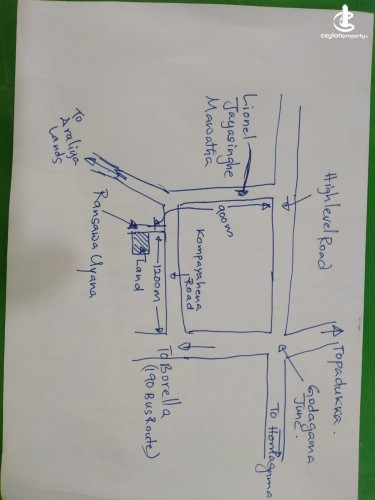 ceylonproperty.lk
Lionel
Jayasinghe
Mawatha
Highlevel Road
To
Araliya
Lands
900m
Kompayahena
Road
Ransawa Uyana
Land
1200m
To Borella
(190 Bus Route)
To padukka.
Godagama
Junc.
To Homagama